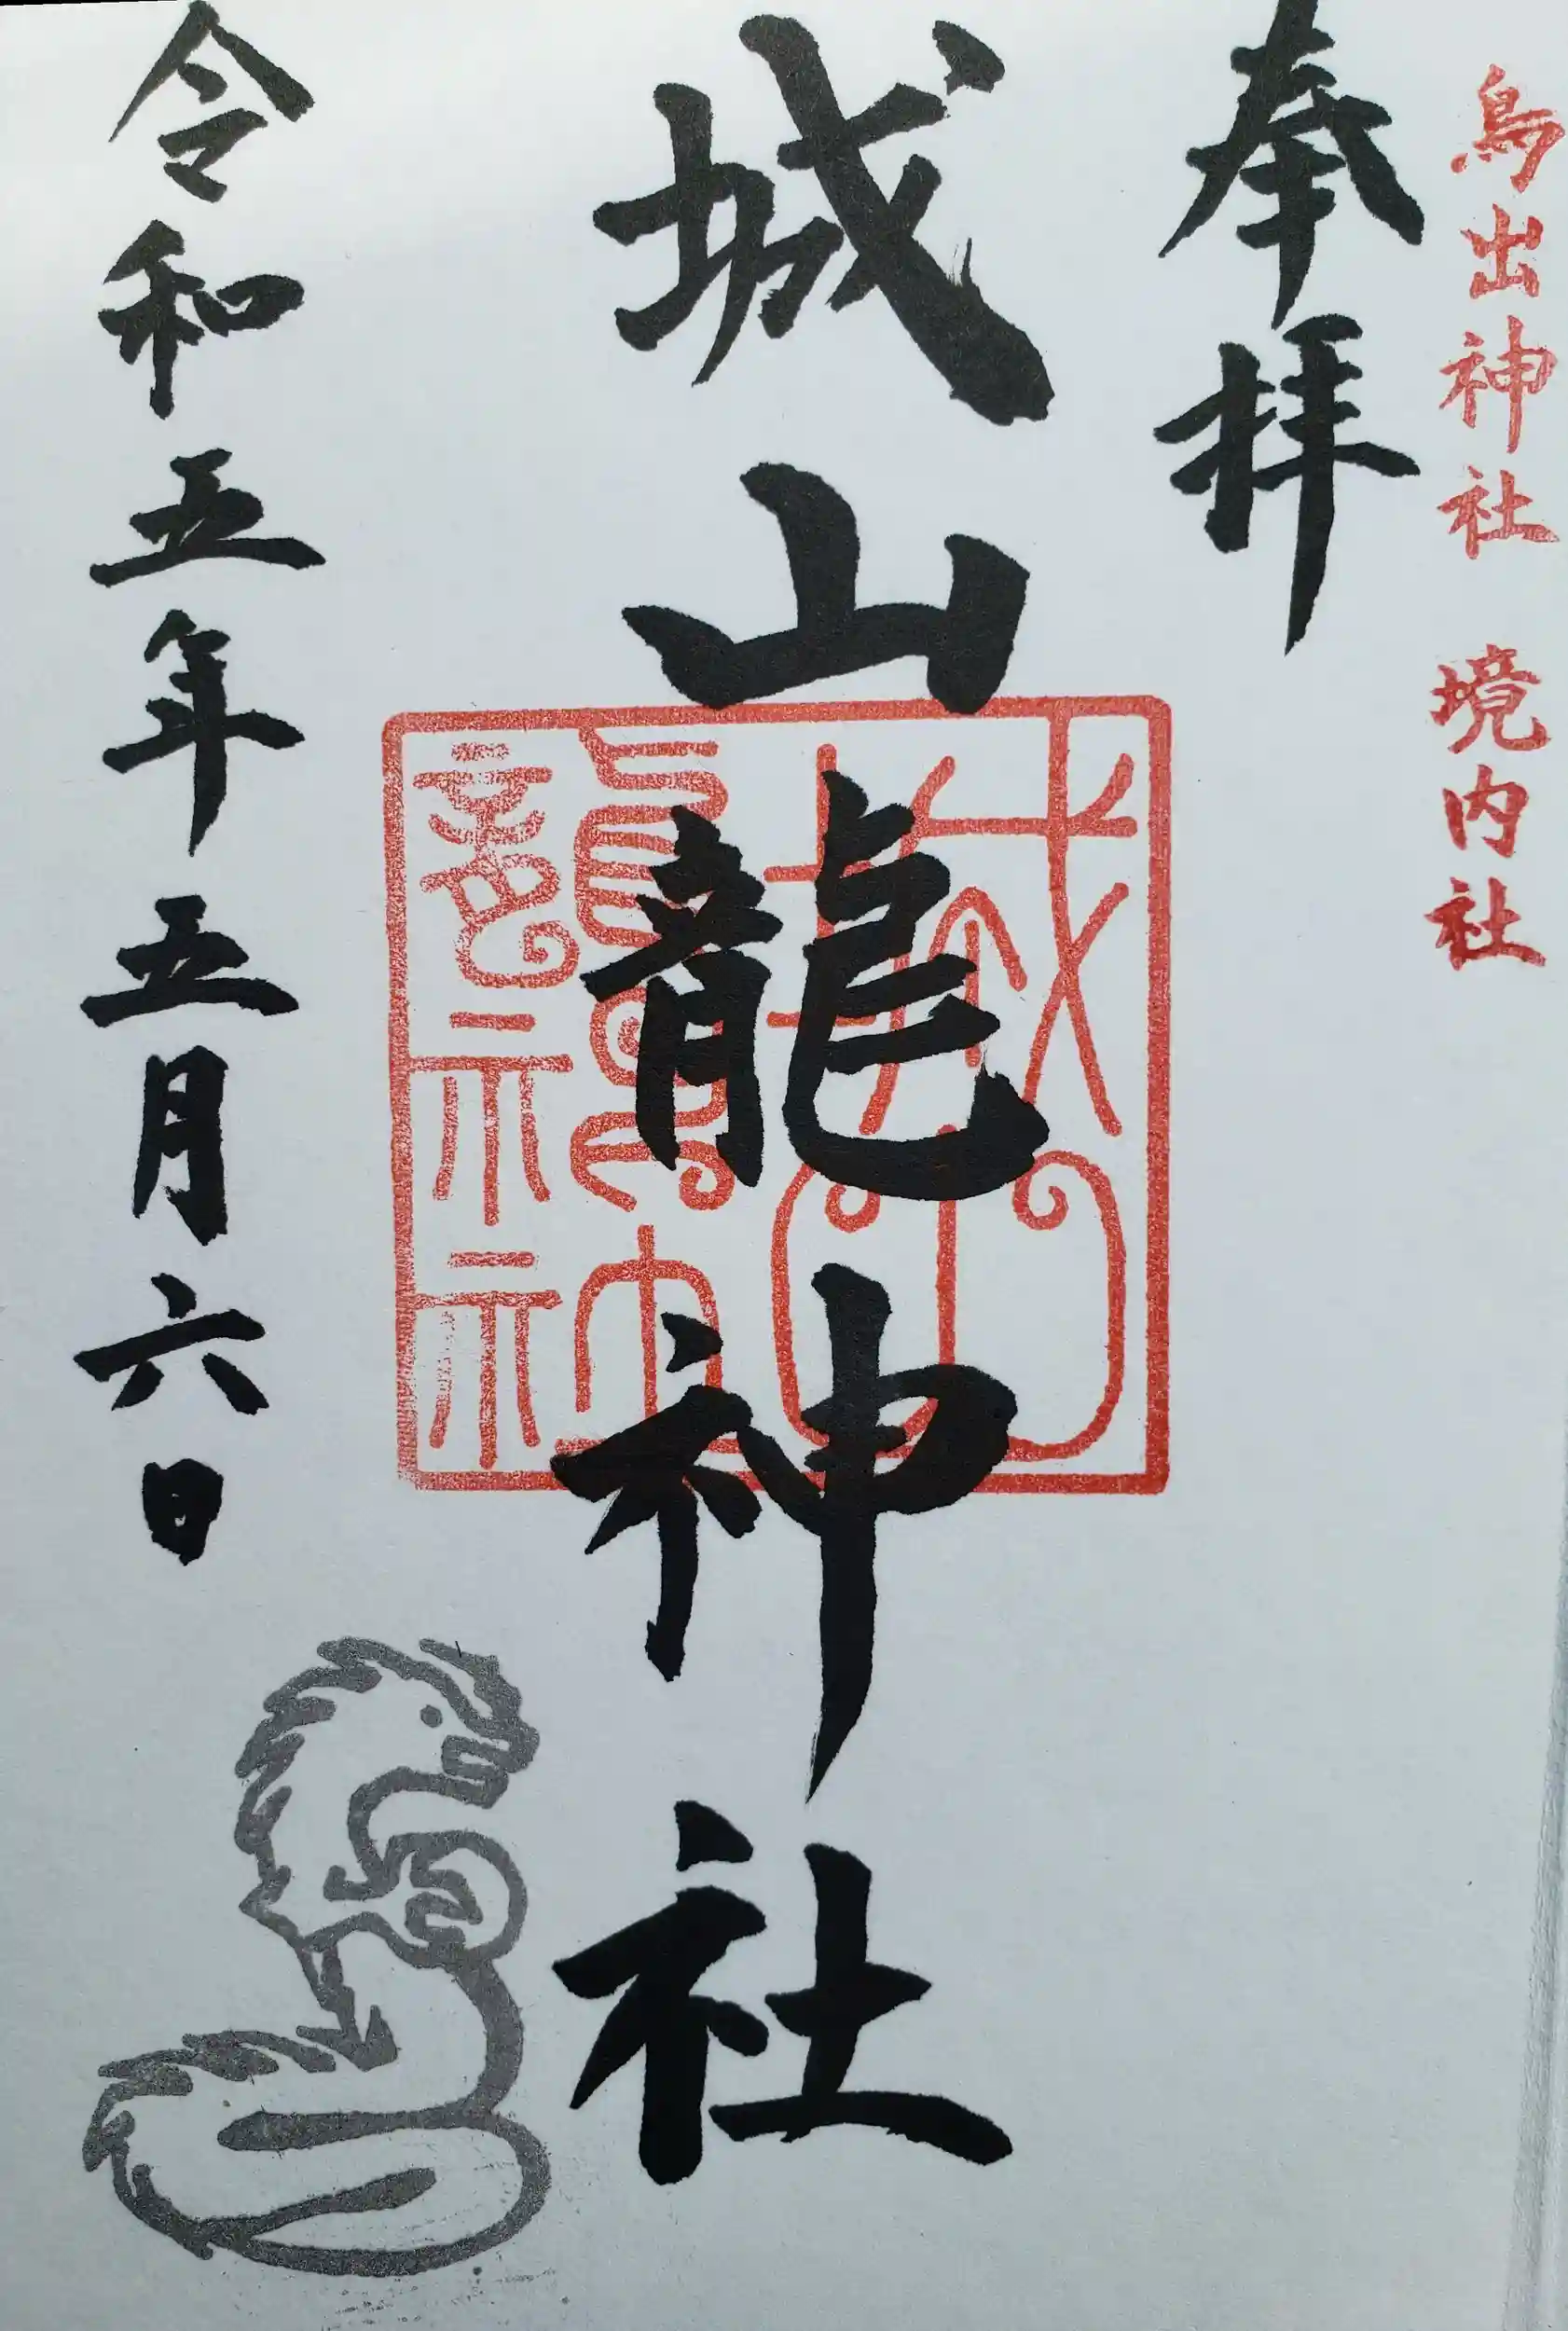 鳥出神社 境内社
奉拝
城山龍神社
城山
龍神
令和五年五月六日